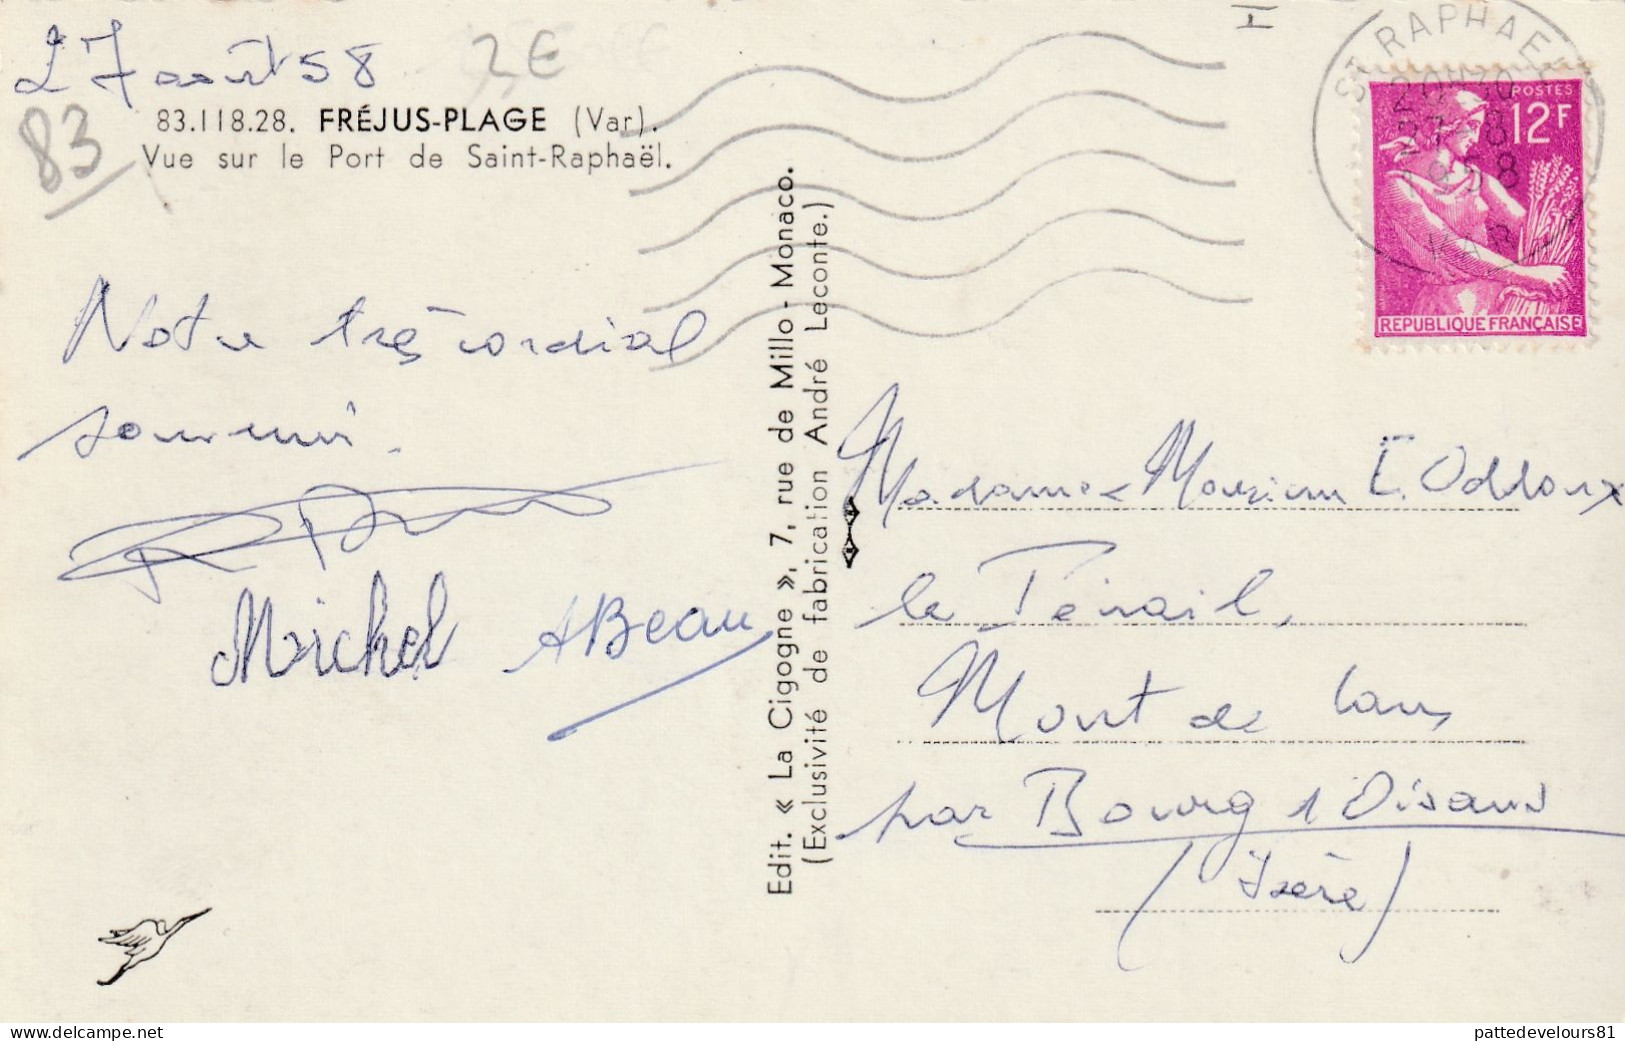 27 août 58
2€
83
83.118.28. FRÉJUS-PLAGE (Var).
Vue sur le Port de Saint-Raphaël.
Notre très cordial
souvenir.
Michel ABeau
Edit. « La Cigogne », 7, rue de Millo - Monaco.
(Exclusivité de fabrication André Leconte.)
ST RAPHAEL
20H30
27-8
1958
VAR
POSTES
12F
REPUBLIQUE FRANÇAISE
Madame Monsieur E. Oddoux
le Périail,
Mont de Lans
par Bourg d'Oisans
(Isère)
delcampe.net
pattedevelours81